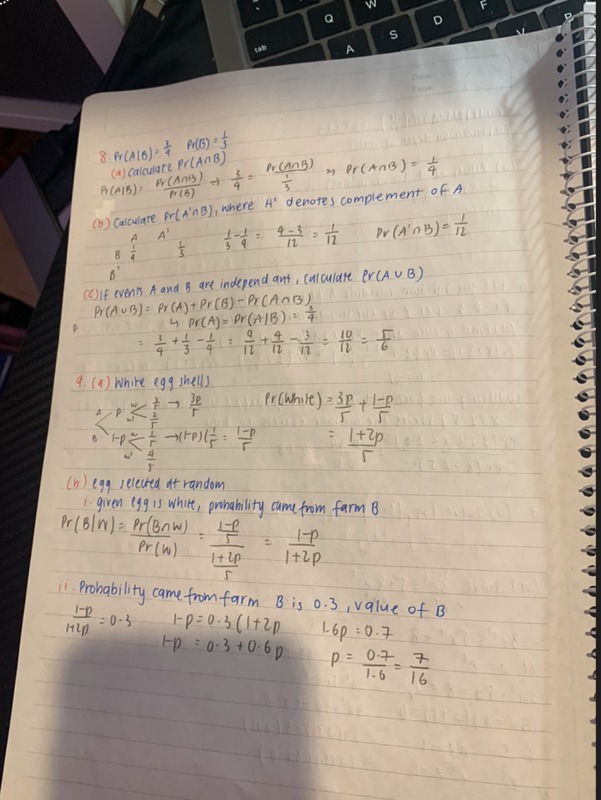 tab
Q
W
A
S
D
F
V
B
Date:
Page:
8. Pr(A|B) = 3/4 Pr(B) = 1/3
(a) Calculate Pr(A∩B)
Pr(A|B) = Pr(A∩B)/Pr(B) → 3/4 = Pr(A∩B)/(1/3) → Pr(A∩B) = 1/4
(b) Calculate Pr(A'∩B), where H' denotes complement of A
A A'
B 1/4 1/3 1/3 - 1/4 = 4-3/12 = 1/12 Pr(A'∩B) = 1/12
B'
(c) If events A and B are independant, calculate Pr(A∪B)
Pr(A∪B) = Pr(A) + Pr(B) - Pr(A∩B)
↳ Pr(A) = Pr(A|B) = 3/4
= 3/4 + 1/3 - 1/4 = 9/12 + 4/12 - 3/12 = 10/12 = 5/6
9. (a) White egg shells
A p w 3/5 → 3p/5 Pr(White) = 3p/5 + 1-p/5
w' 2/5
B 1-p w 1/5 → (1-p)(1/5 = 1-p/5 = 1+2p/5
w' 4/5
(b) egg selected at random
i. given egg is white, probability came from farm B
Pr(B|W) = Pr(B∩W)/Pr(W) = (1-p/5)/(1+2p/5) = 1-p/1+2p
ii. Probability came from farm B is 0.3, value of B
1-p/1+2p = 0.3 1-p = 0.3(1+2p 1.6p = 0.7
1-p = 0.3 + 0.6p p = 0.7/1.6 = 7/16